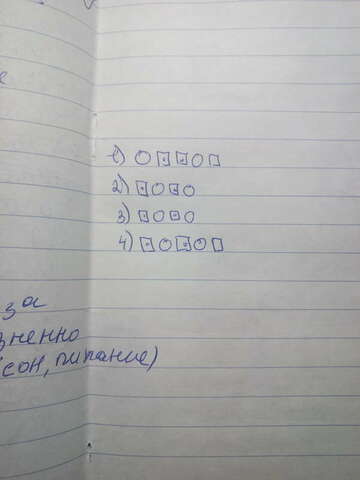 1) ○⊡⊡○□
2) ⊡○⊡○
3) ⊡○⊡○
4) ⊡○⊡○□
за
зненно
(сон, питание)